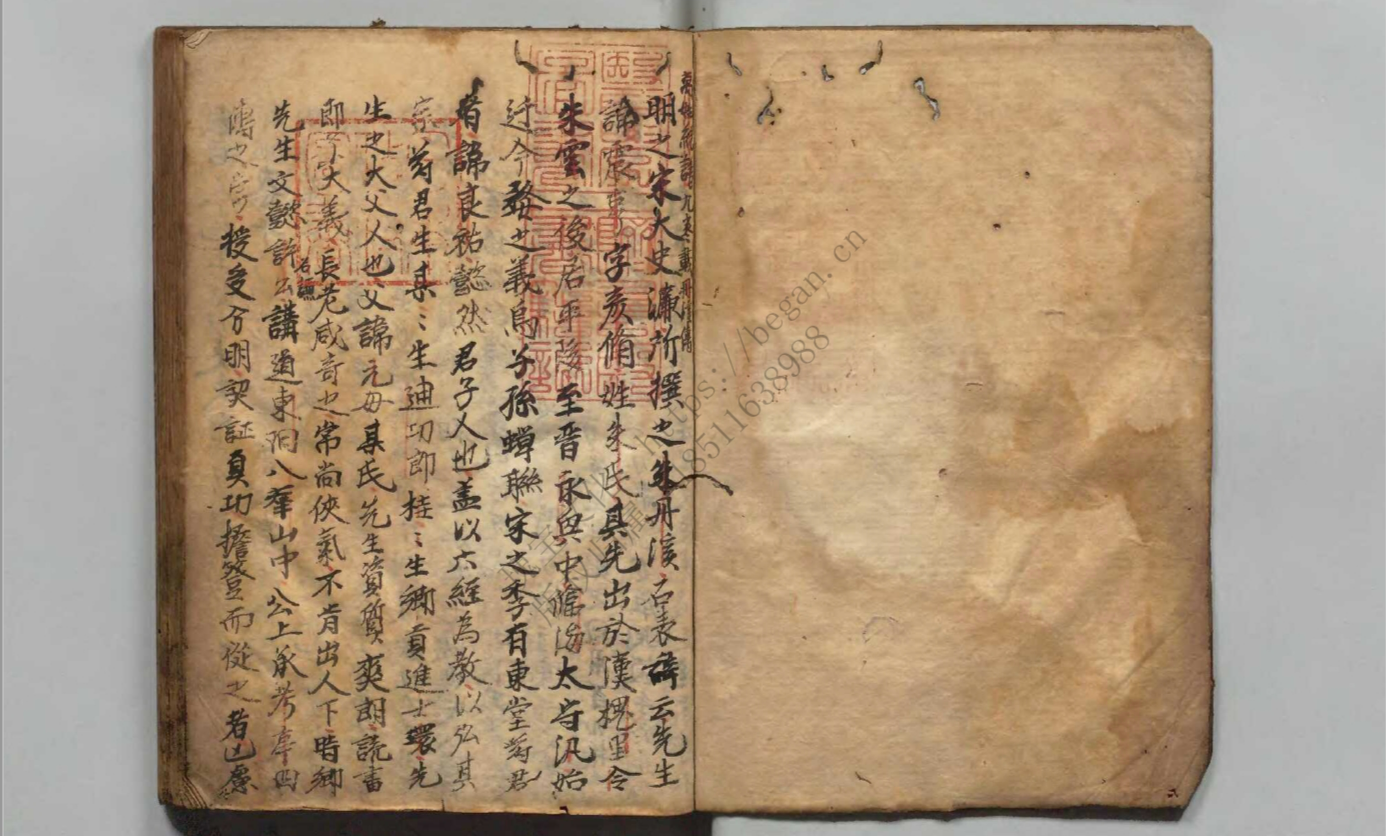 明之宋大史濂所撰之朱丹溪石表辞云先生
諱震亨字彦脩姓朱氏其先出於漢槐里令
朱雲之後居平陵至晋永興中臨海太守汎始
迁今婺之義烏子孫蟬聯宋之季有東堂府君
者諱良祐懿然君子人也盖以六經為教以弘其
宗府君生某〻生迪功郎桂〻生鄉貢進士環先
生之大父人也父諱元母某氏先生資質爽朗読書
即了大義長老咸奇之常尚俠氣不肯出人下時鄉
先生文懿許公講道東陽八華山中公上承考亭四
傳之学授受分明契証真切擔簦而従之者亡慮
https://began.cn
18511638988